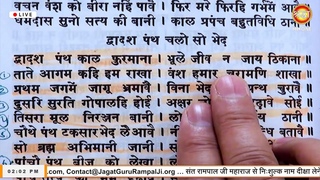 वचन वंश को बीरा नहिं पावै । फिर मरे फिरहि गर्भमें आवै
धर्मदास सुनो सत्य की बानी । काल प्रपंच बहुतविधि ठानी
द्वादश पंथ चलो सो भेद
द्वादश पंथ काल फुरमाना । भूले जीव न जाय ठिकाना
ताते आगम कहि हम राखा । वंश हमार चूरामणि शाखा
प्रथम जगमें जागू भ्रमावै । विना भेद ग्रन्थ चुरावै
दुसरि सुरति गोपालहि होई । अक्षर
तिसरा मूल निरञ्जन बानी ।
चौथे पंथ टकसार भेद लै आवै ।
सो ब्रह्म अभिमानी जानी
पांचों पंथ बीज को लेखा
LIVE
02:02 PM
com, Contact@JagatGuruRampalJi.org ... संत रामपाल जी महाराज से निःशुल्क नाम दीक्षा लेने